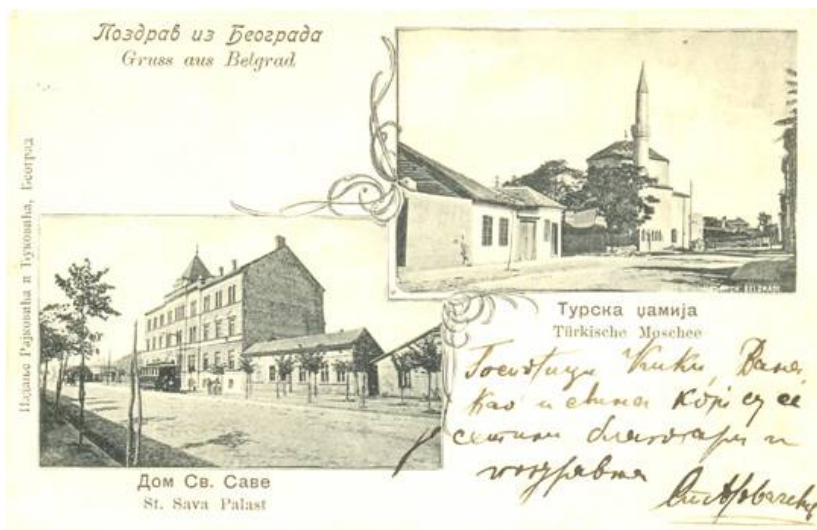 Поздрав из Београда
Gruss aus Belgrad
Издање Рајковића и Ђуковића, Београд
Турска џамија
Türkische Moschee
Дом Св. Саве
St. Sava Palast
као и свима који су се
сетили благодари и
поздравља